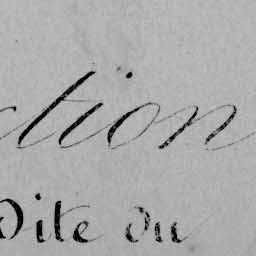 ction
Dite du